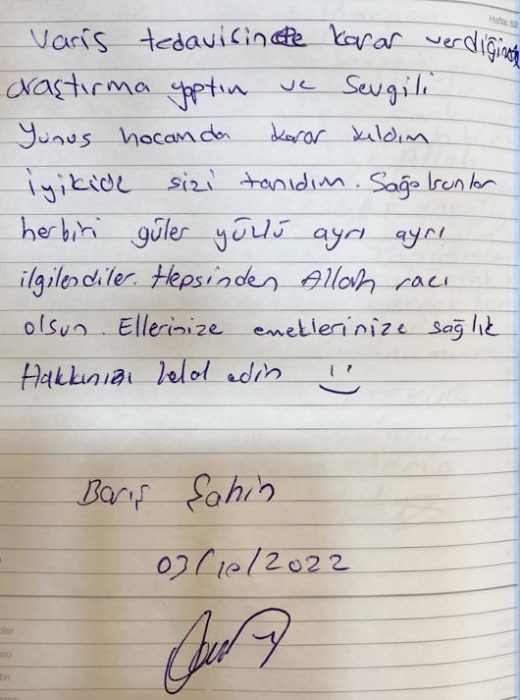 Hafta: 52
Varis tedavisinde karar verdiğimde
araştırma yaptım ve Sevgili
Yunus hocamda karar kıldım
iyikide sizi tanıdım. Sağolsunlar
herbiri güler yüzlü ayrı ayrı
ilgilendiler. Hepsinden Allah razı
olsun. Ellerinize emeklerinize sağlık
Hakkınızı helal edin
Barış Şahin
03/10/2022